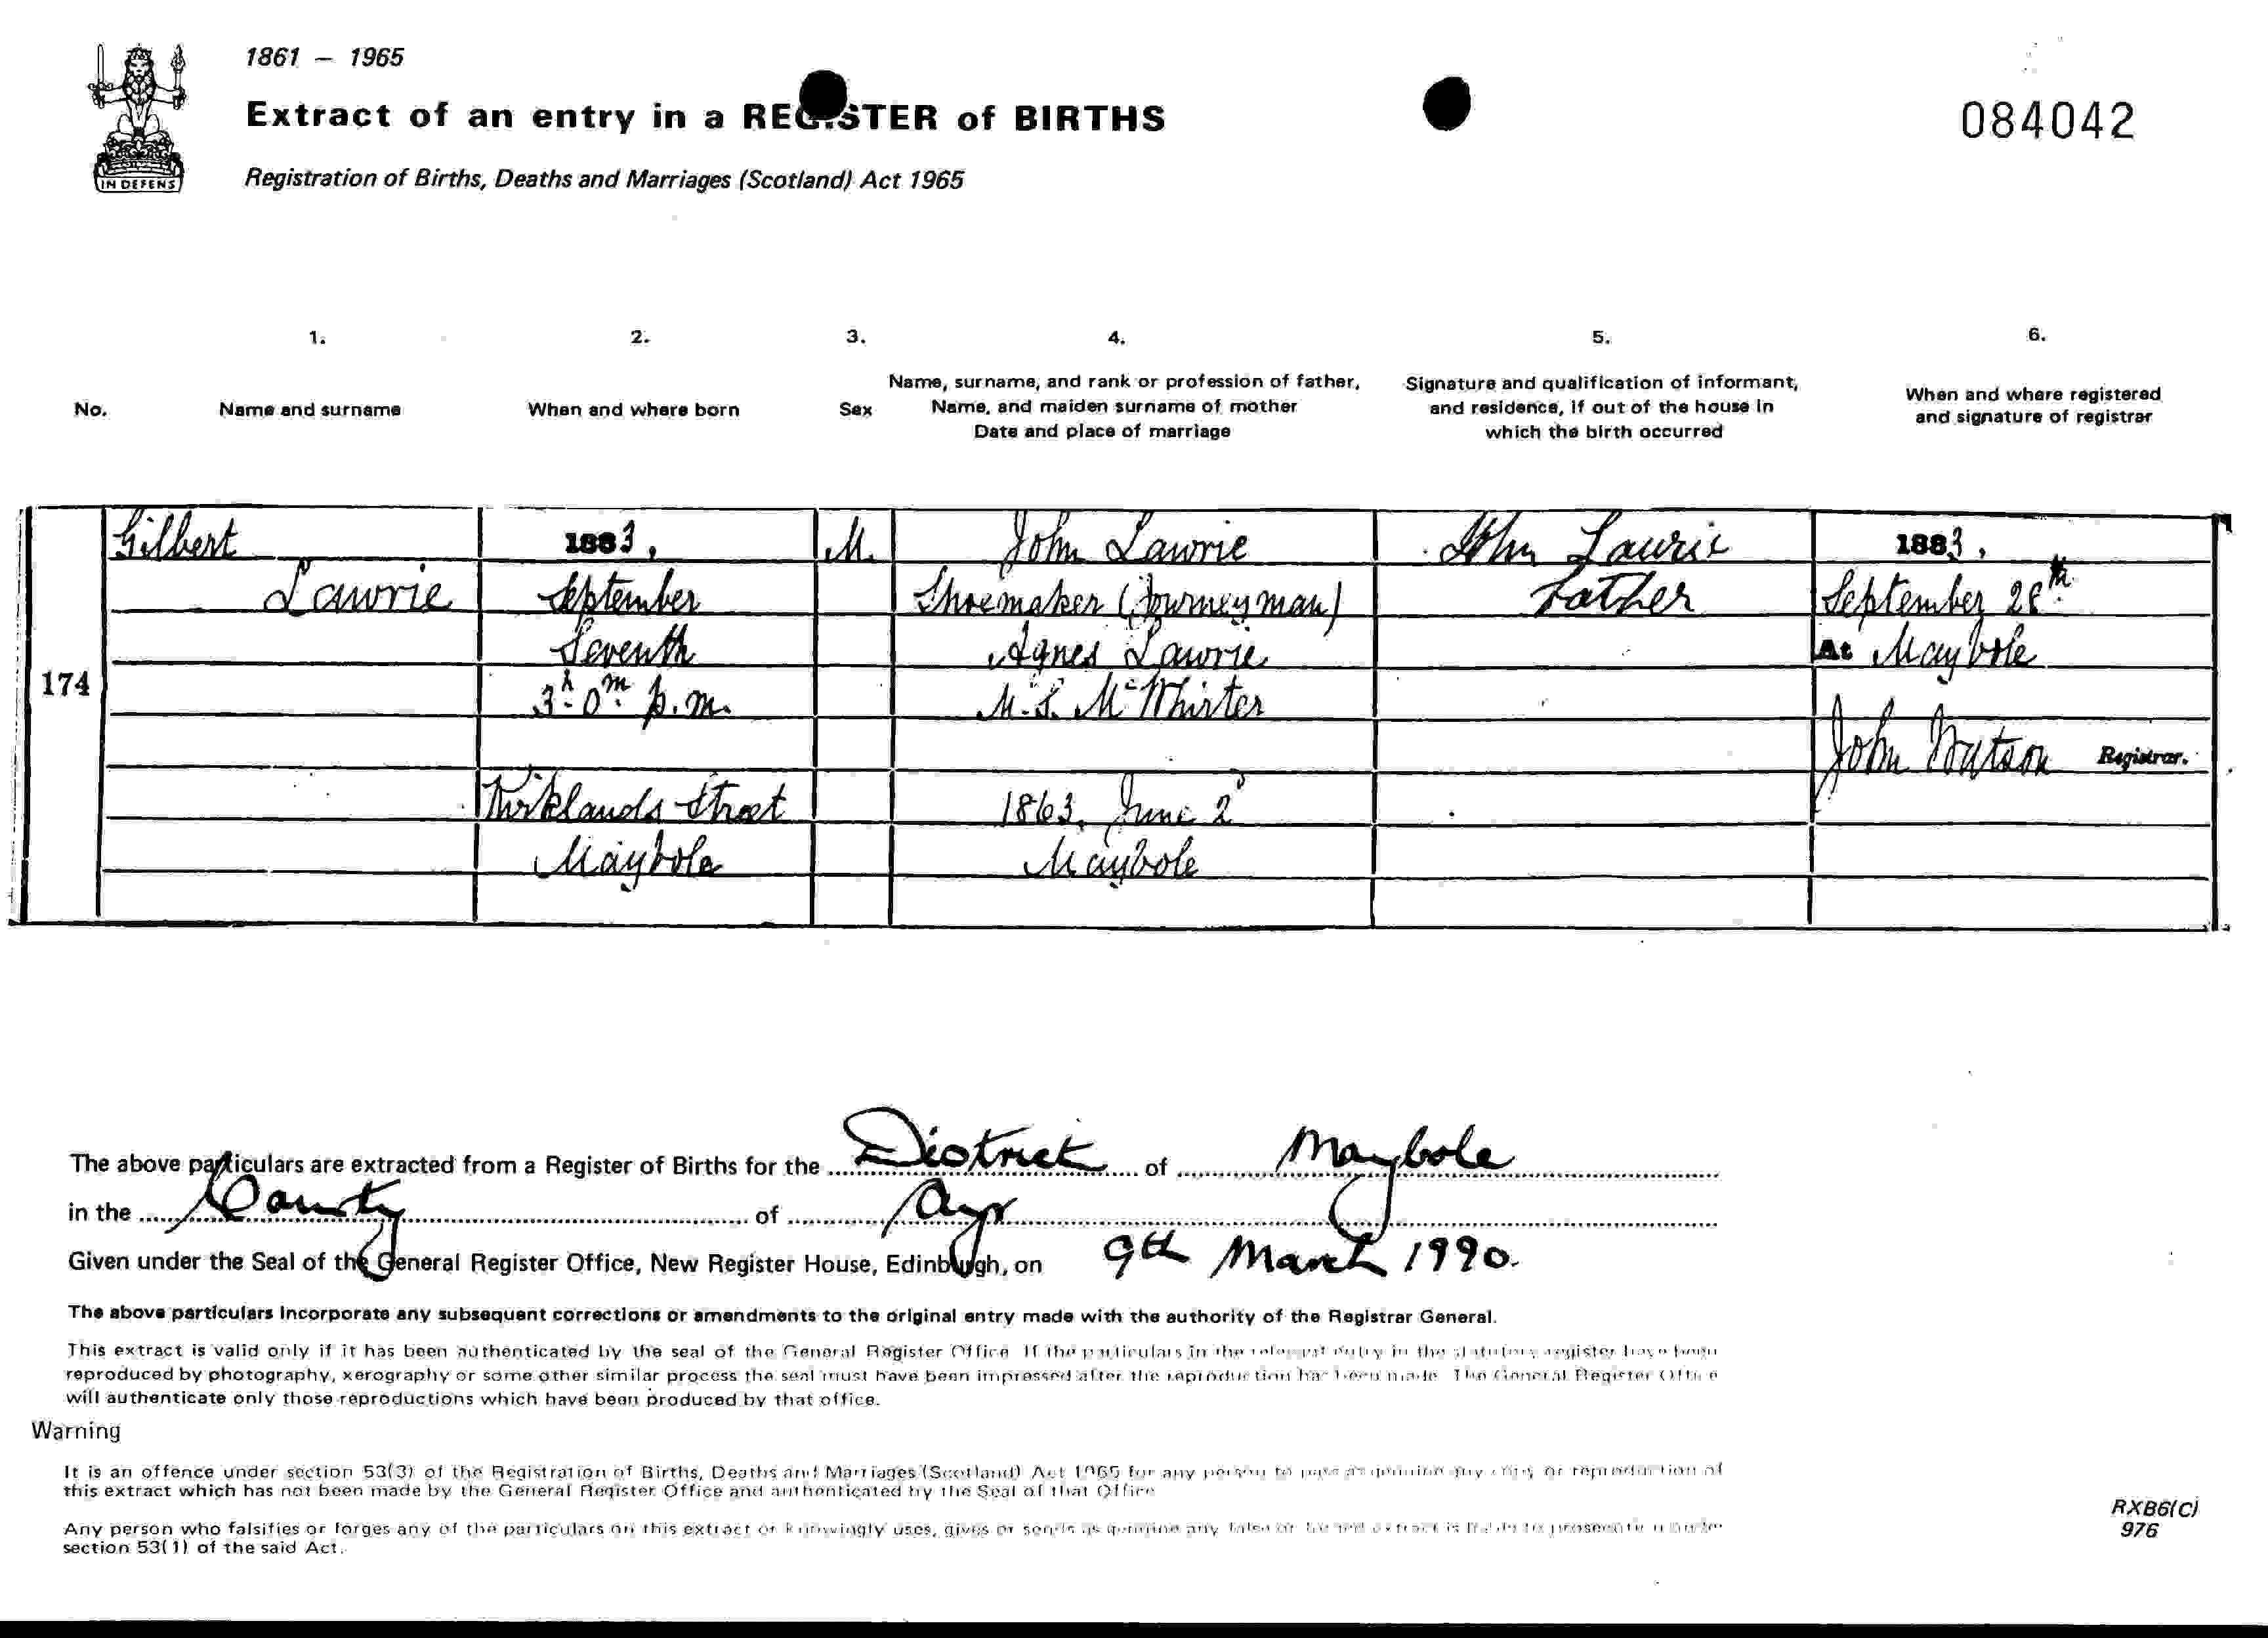 1861 – 1965
Extract of an entry in a REGISTER of BIRTHS
084042
IN DEFENS
Registration of Births, Deaths and Marriages (Scotland) Act 1965
1. 2. 3. 4. 5. 6.
No.
Name and surname
When and where born
Sex
Name, surname, and rank or profession of father,
Name, and maiden surname of mother
Date and place of marriage
Signature and qualification of informant,
and residence, if out of the house in
which the birth occurred
When and where registered
and signature of registrar
174
Gilbert
Lawrie
1883.
September
Seventh
3h 0m p.m.
Kirklands Street
Maybole
M.
John Lawrie
Shoemaker (Journeyman)
Agnes Lawrie
M.S. McWhirter
1863, June 2d
Maybole
John Laurie
Father
1883.
September 28th
At Maybole
John Watson Registrar.
The above particulars are extracted from a Register of Births for the District of Maybole
in the County of Ayr
Given under the Seal of the General Register Office, New Register House, Edinburgh, on 9th March 1990.
The above particulars incorporate any subsequent corrections or amendments to the original entry made with the authority of the Registrar General.
This extract is valid only if it has been authenticated by the seal of the General Register Office. If the particulars in the relevant entry in the statutory register have been
reproduced by photography, xerography or some other similar process the seal must have been impressed after the reproduction has been made. The General Register Office
will authenticate only those reproductions which have been produced by that office.
Warning
It is an offence under section 53(3) of the Registration of Births, Deaths and Marriages (Scotland) Act 1965 for any person to pass as genuine any copy or reproduction of
this extract which has not been made by the General Register Office and authenticated by the Seal of that Office
Any person who falsifies or forges any of the particulars on this extract or knowingly uses, gives or sends as genuine any false or forged extract is liable to prosecution under
section 53(1) of the said Act.
RXB6(C)
976